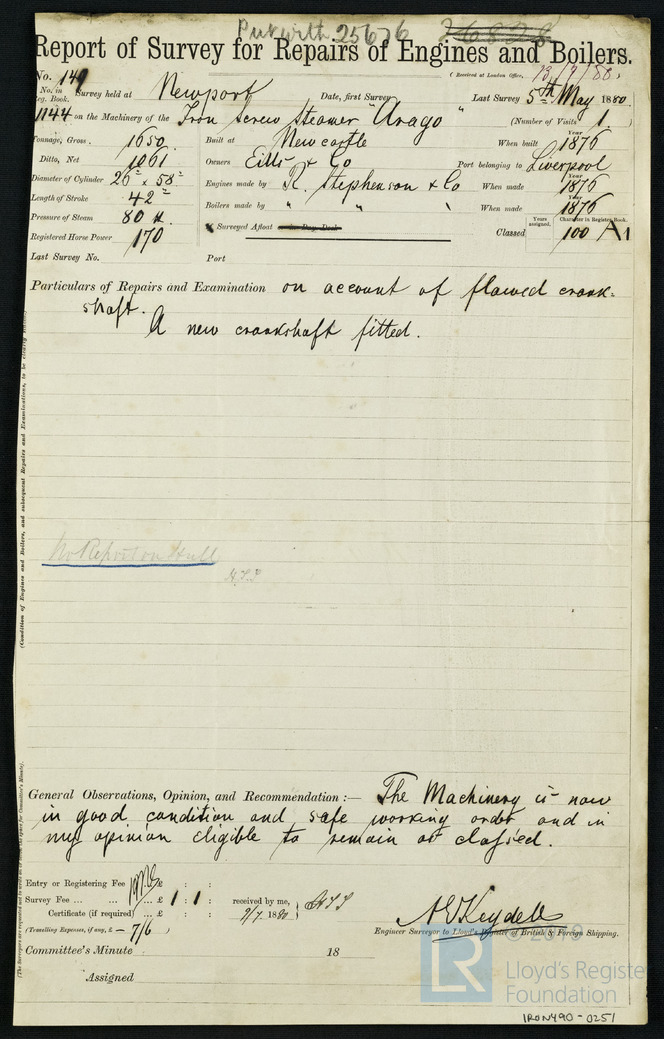 Put with 25676 26828
Report of Survey for Repairs of Engines and Boilers.
No. 149 (Received at London Office, 13/7/80)
No. in Reg. Book. Survey held at Newport Date, first Survey " Last Survey 5th May 1880
1144 on the Machinery of the Iron Screw Steamer Arago (Number of Visits 1)
Tonnage, Gross 1650 Built at Newcastle When built Year 1876
Ditto, Net 1061 Owners Eills & Co Port belonging to Liverpool
Diameter of Cylinder 26" x 58" Engines made by R. Stephenson & Co When made Year 1876
Length of Stroke 42" Boilers made by " " " When made Year 1876
Pressure of Steam 80 Surveyed Afloat or in Dry Dock Classed Years assigned. Character in Register Book. 100 A1
Registered Horse Power 170
Last Survey No. Port
Particulars of Repairs and Examination on account of flawed crank=
shaft.
A new crankshaft fitted.
(Condition of Engines and Boilers, and subsequent Repairs and Examinations, to be clearly stated)
No Report on Hull
General Observations, Opinion, and Recommendation :— The Machinery is now
in good condition and safe working order and in
my opinion eligible to remain as classed.
Entry or Registering Fee £ : :
Survey Fee ... ... £ 1 : 1 : received by me,
Certificate (if required) ... £ : : 9/7 1880
(Travelling Expenses, if any, £ – 7/6 )
A E Keydell
Engineer Surveyor to Lloyd's Register of British & Foreign Shipping.
Committee's Minute 18
Assigned
© 2019
LR Lloyd's Register
Foundation
IRON490-0251